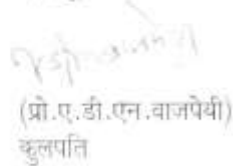 (प्रो.ए.डी.एन.वाजपेयी)
कुलपति